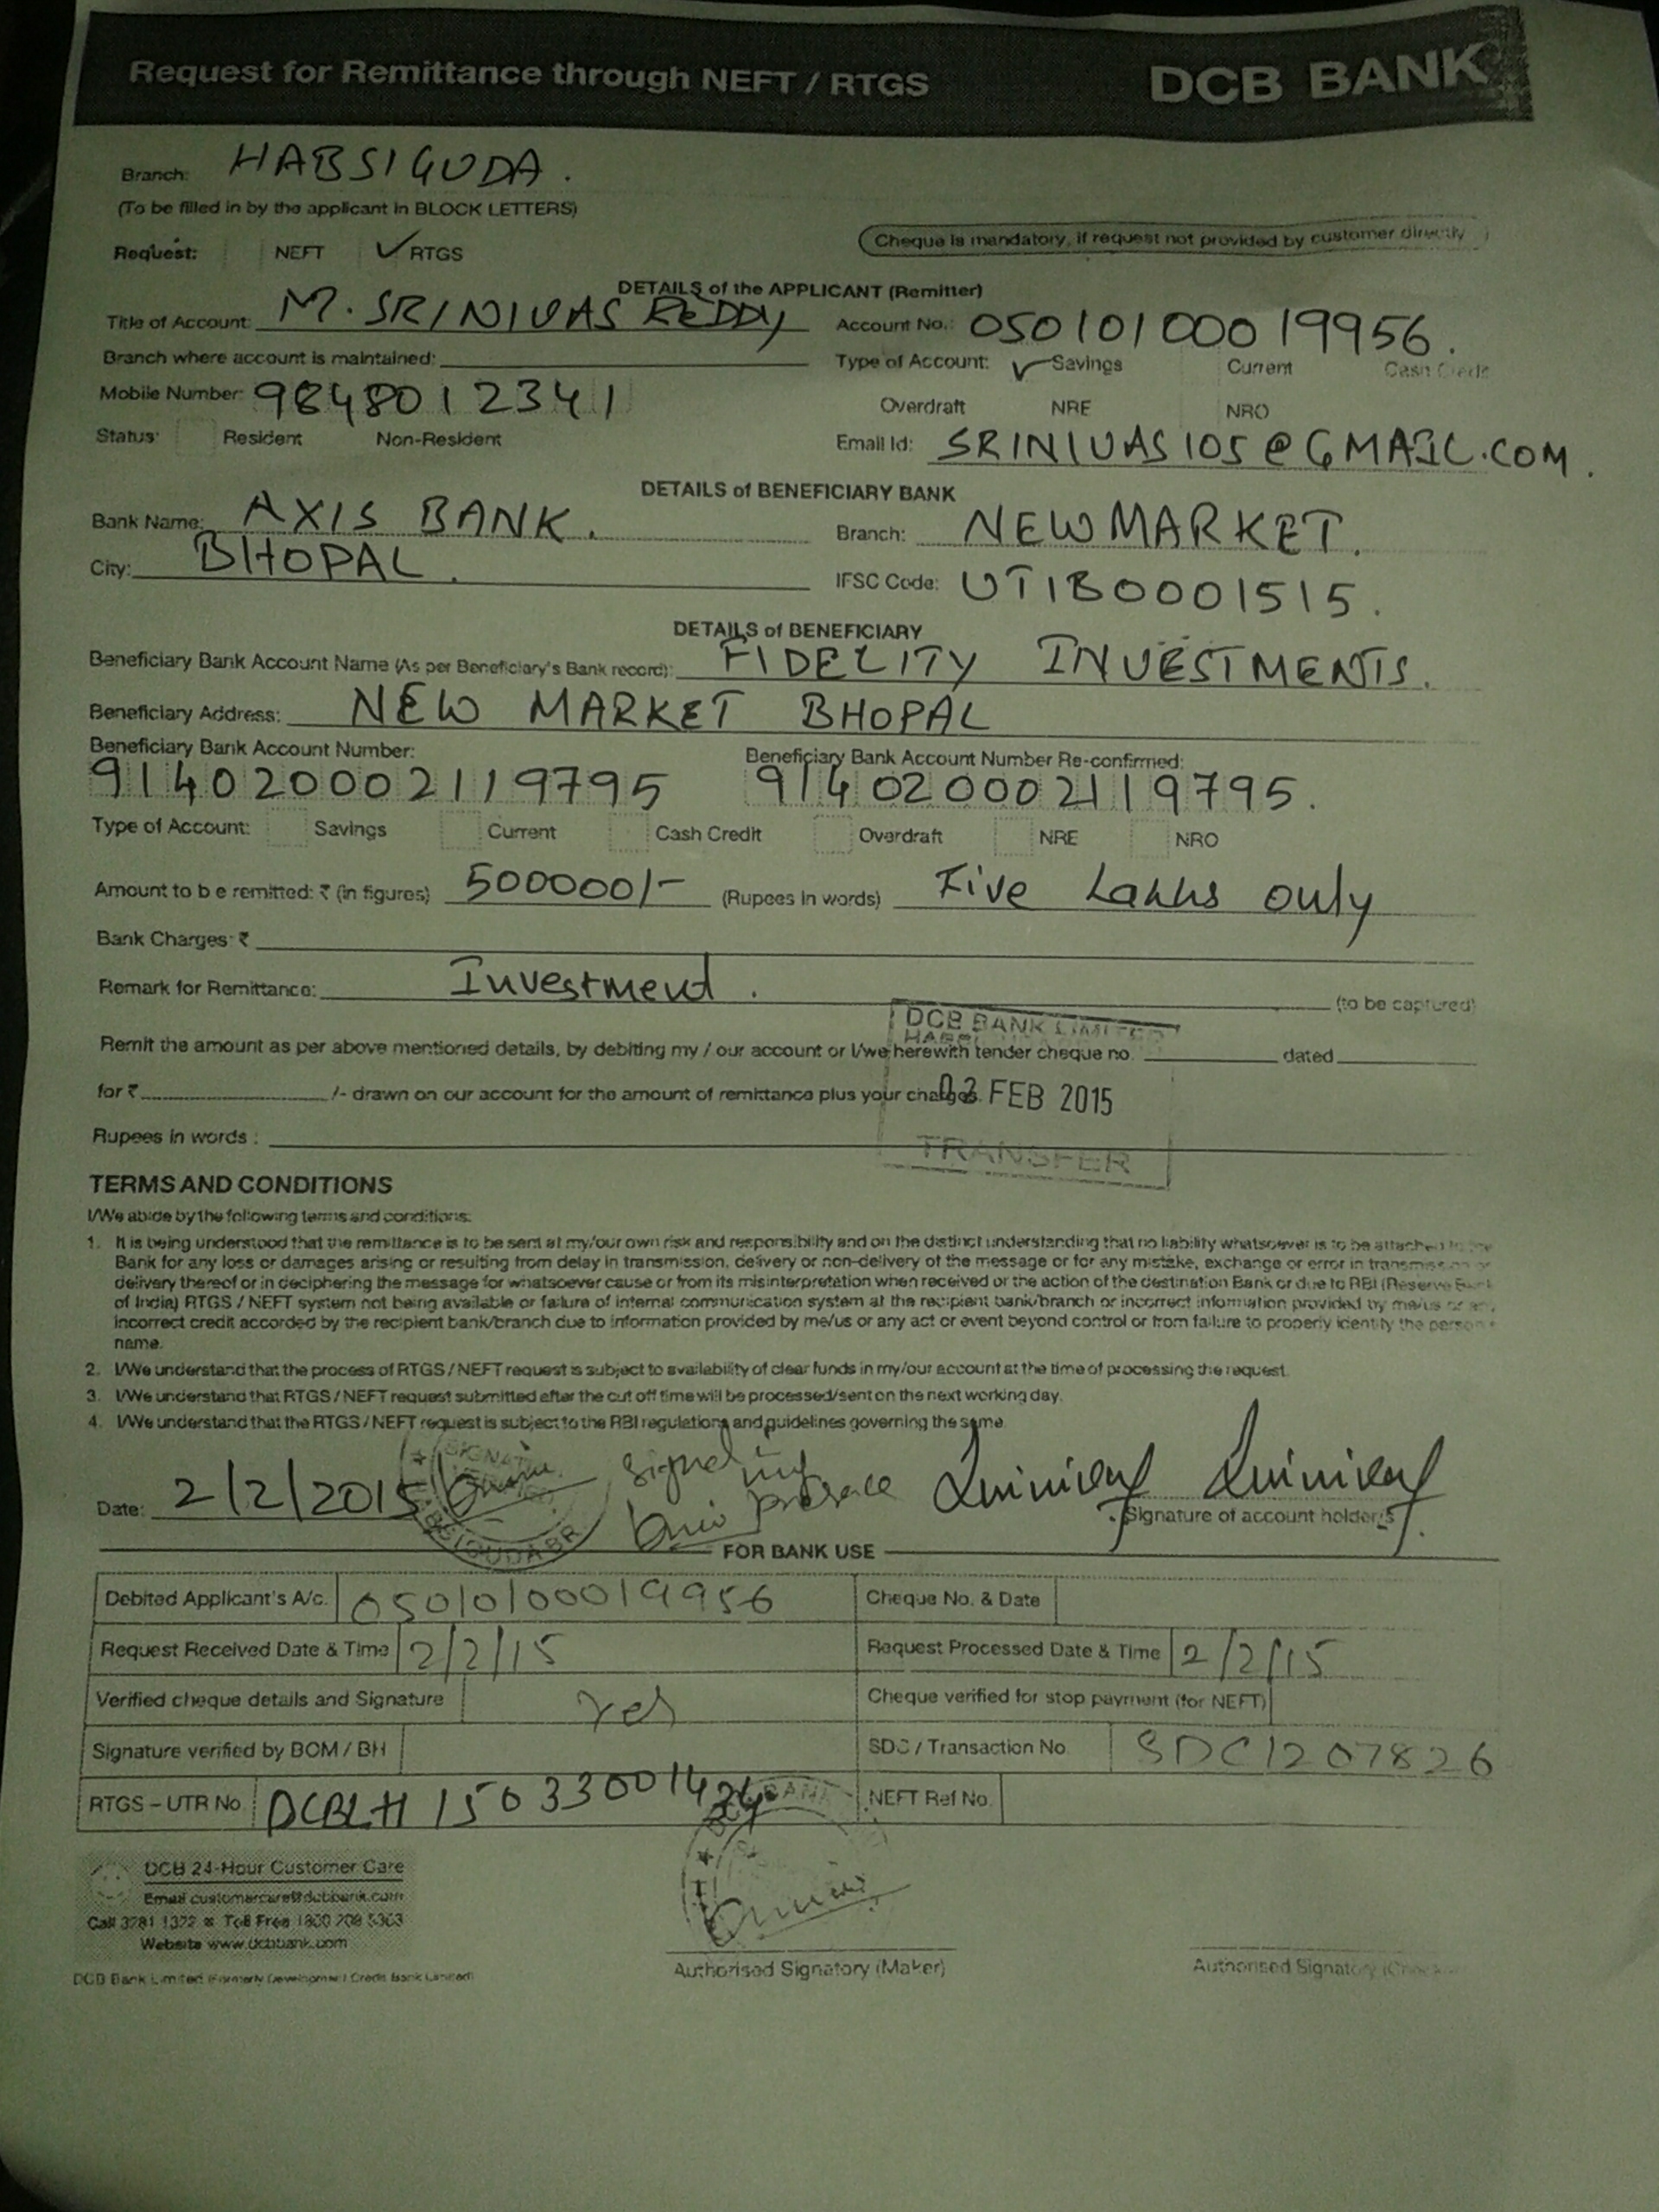 Request for Remittance through NEFT / RTGS DCB BANK
Branch: HABSIGUDA.
(To be filled in by the applicant in BLOCK LETTERS)
Cheque is mandatory, if request not provided by customer directly
Request: NEFT ✓ RTGS
DETAILS of the APPLICANT (Remitter)
Title of Account: M. SRINIVAS REDDY Account No.: 05010100019956.
Branch where account is maintained: Type of Account: ✓ Savings Current Cash Credit
Mobile Number: 9848012341 Overdraft NRE NRO
Status: Resident Non-Resident Email Id: SRINIVAS105@GMAIL.COM.
DETAILS of BENEFICIARY BANK
Bank Name: AXIS BANK. Branch: NEW MARKET.
City: BHOPAL. IFSC Code: UTIB0001515.
DETAILS of BENEFICIARY
Beneficiary Bank Account Name (As per Beneficiary's Bank record): FIDELITY INVESTMENTS.
Beneficiary Address: NEW MARKET BHOPAL
Beneficiary Bank Account Number: Beneficiary Bank Account Number Re-confirmed:
914020002119795 914020002119795.
Type of Account: Savings Current Cash Credit Overdraft NRE NRO
Amount to b e remitted: ₹ (in figures) 500000/- (Rupees in words) Five Lakhs only
Bank Charges ₹
Remark for Remittance: Investment. (to be captured)
DCB BANK LIMITED
Remit the amount as per above mentioned details, by debiting my / our account or I/we herewith tender cheque no. dated
for ₹ /- drawn on our account for the amount of remittance plus your charges.
02 FEB 2015
Rupees in words :
TRANSFER
TERMS AND CONDITIONS
I/We abide by the following terms and conditions.
1. It is being understood that the remittance is to be sent at my/our own risk and responsibility and on the distinct understanding that no liability whatsoever is to be attached to the
Bank for any loss or damages arising or resulting from delay in transmission, delivery or non-delivery of the message or for any mistake, exchange or error in transmission or
delivery thereof or in deciphering the message for whatsoever cause or from its misinterpretation when received or the action of the destination Bank or due to RBI (Reserve Bank
of India) RTGS / NEFT system not being available or failure of internal communication system at the recipient bank/branch or incorrect information provided by me/us or any
incorrect credit accorded by the recipient bank/branch due to information provided by me/us or any act or event beyond control or from failure to properly identify the person
name.
2. I/We understand that the process of RTGS / NEFT request is subject to availability of clear funds in my/our account at the time of processing the request.
3. I/We understand that RTGS / NEFT request submitted after the cut off time will be processed/sent on the next working day.
4. I/We understand that the RTGS / NEFT request is subject to the RBI regulations and guidelines governing the same.
Signed in my presence
Date: 2/2/2015 Signature of account holder/s
FOR BANK USE
Debited Applicant's A/c. 05010100019956 Cheque No. & Date
Request Received Date & Time 2/2/15 Request Processed Date & Time 2/2/15
Verified cheque details and Signature Yes Cheque verified for stop payment (for NEFT)
Signature verified by BOM / BH SDC / Transaction No. SDC1207826
RTGS - UTR No. DCBLH 15033001424 NEFT Ref No.
DCB 24-Hour Customer Care
Email customercare@dcbbank.com
Call 3281 1322 Toll Free 1800 209 5363
Website www.dcbbank.com
DCB Bank Limited (Formerly Development Credit Bank Limited)
Authorised Signatory (Maker) Authorised Signatory